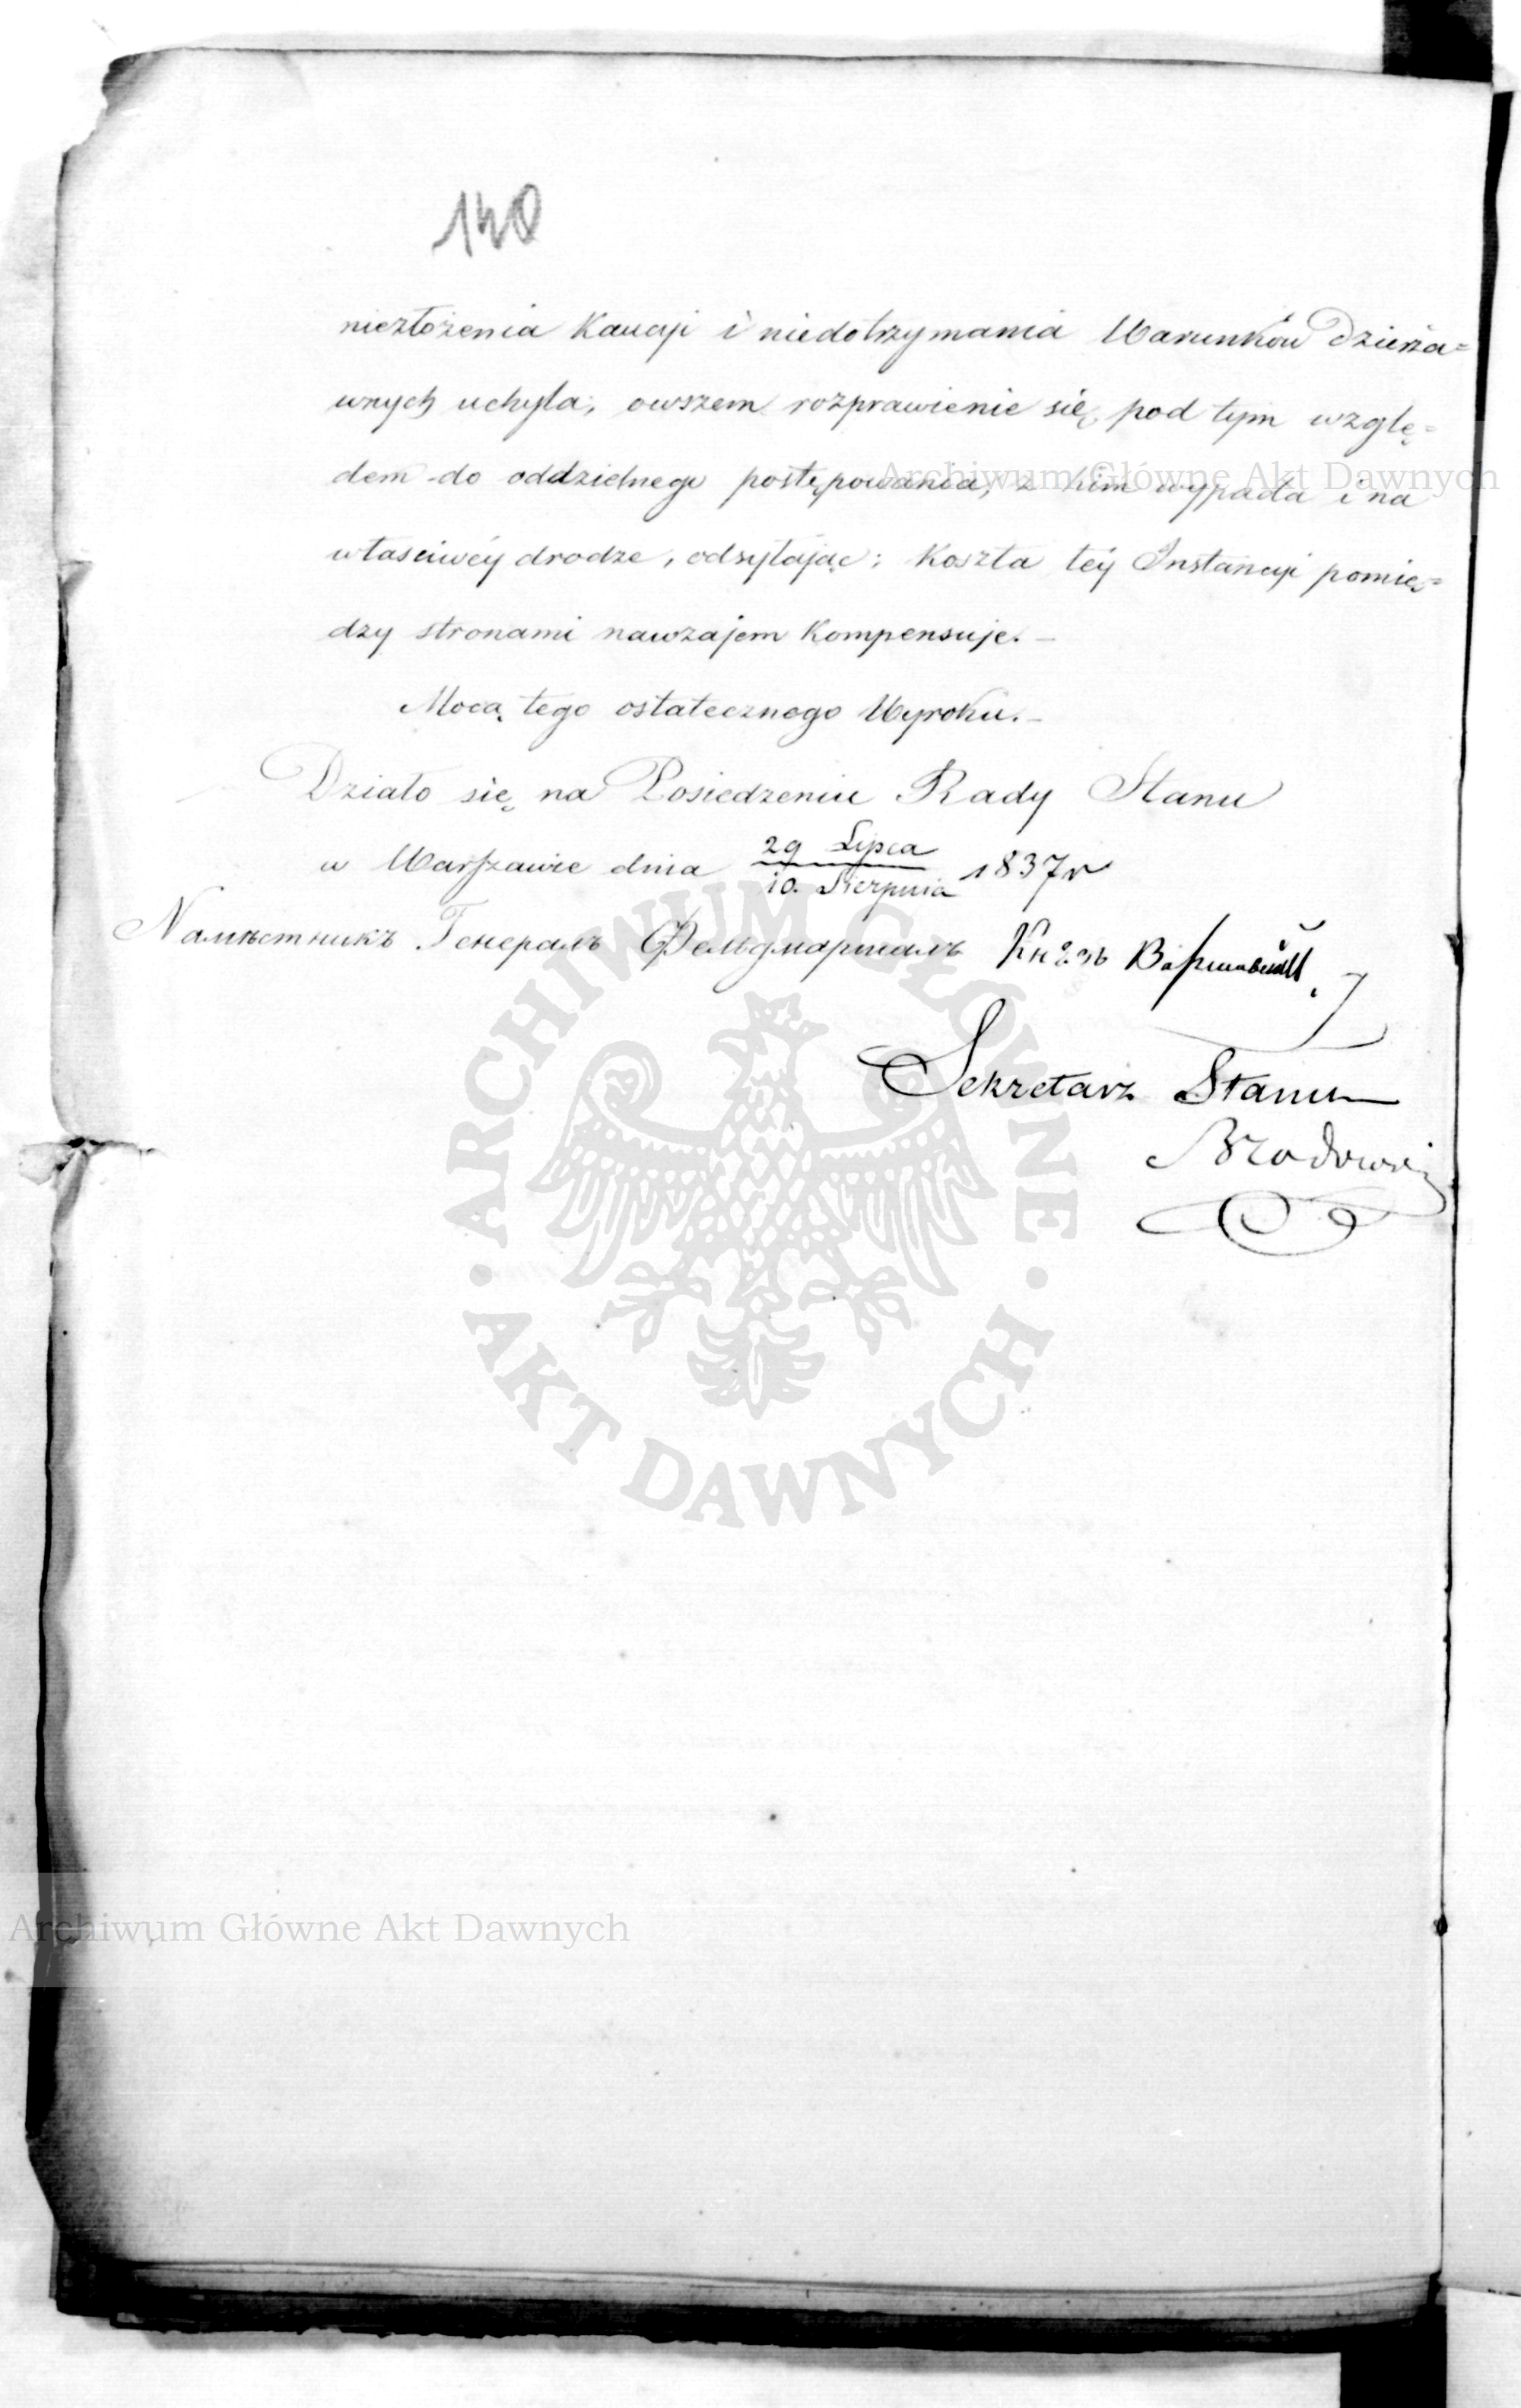 140
niezłożenia Kaucyi i niedotrzymania Warunków Dzierża=
wnych uchyla, owszem rozprawienie się pod tym wzglę=
dem do oddzielnego postępowania, z kim wypada i na
właściwéy drodze, odsyłając; Koszta téy Instancyi pomię=
dzy stronami nawzajem Kompensuje.—
Mocą tego ostatecznego Wyroku.—
Działo się na Posiedzeniu Rady Stanu
w Warszawie dnia 29 Lipca / 10 Sierpnia 1837 r
Намѣстникъ Генералъ Фельдмаршалъ Князь Варшавскій
Sekretarz Stanu
Brodowski
Archiwum Główne Akt Dawnych
ARCHIWUM GŁÓWNE AKT DAWNYCH
Archiwum Główne Akt Dawnych